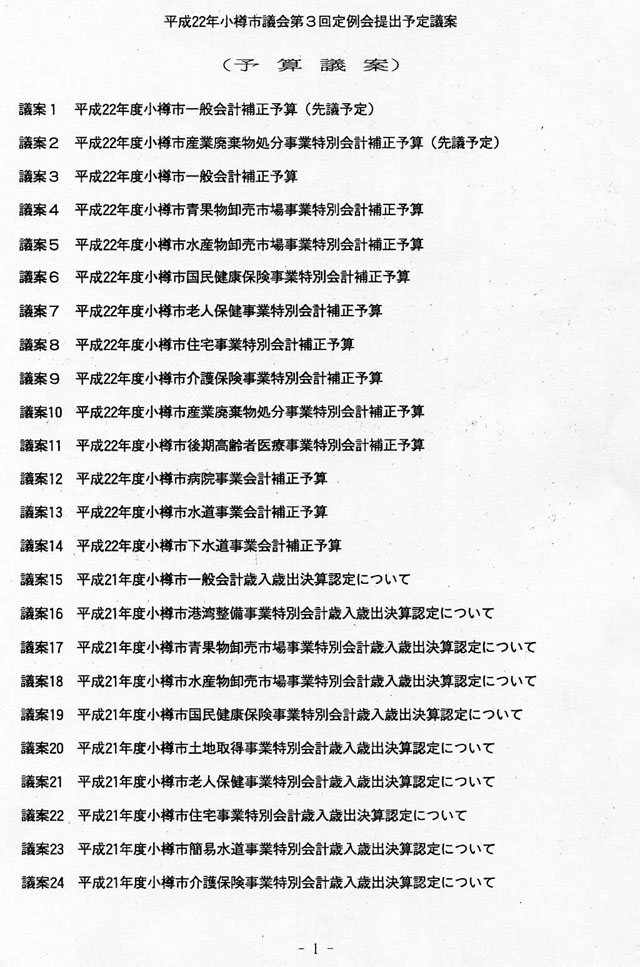 平成22年小樽市議会第3回定例会提出予定議案
（予算議案）
議案1 平成22年度小樽市一般会計補正予算（先議予定）
議案2 平成22年度小樽市産業廃棄物処分事業特別会計補正予算（先議予定）
議案3 平成22年度小樽市一般会計補正予算
議案4 平成22年度小樽市青果物卸売市場事業特別会計補正予算
議案5 平成22年度小樽市水産物卸売市場事業特別会計補正予算
議案6 平成22年度小樽市国民健康保険事業特別会計補正予算
議案7 平成22年度小樽市老人保健事業特別会計補正予算
議案8 平成22年度小樽市住宅事業特別会計補正予算
議案9 平成22年度小樽市介護保険事業特別会計補正予算
議案10 平成22年度小樽市産業廃棄物処分事業特別会計補正予算
議案11 平成22年度小樽市後期高齢者医療事業特別会計補正予算
議案12 平成22年度小樽市病院事業会計補正予算
議案13 平成22年度小樽市水道事業会計補正予算
議案14 平成22年度小樽市下水道事業会計補正予算
議案15 平成21年度小樽市一般会計歳入歳出決算認定について
議案16 平成21年度小樽市港湾整備事業特別会計歳入歳出決算認定について
議案17 平成21年度小樽市青果物卸売市場事業特別会計歳入歳出決算認定について
議案18 平成21年度小樽市水産物卸売市場事業特別会計歳入歳出決算認定について
議案19 平成21年度小樽市国民健康保険事業特別会計歳入歳出決算認定について
議案20 平成21年度小樽市土地取得事業特別会計歳入歳出決算認定について
議案21 平成21年度小樽市老人保健事業特別会計歳入歳出決算認定について
議案22 平成21年度小樽市住宅事業特別会計歳入歳出決算認定について
議案23 平成21年度小樽市簡易水道事業特別会計歳入歳出決算認定について
議案24 平成21年度小樽市介護保険事業特別会計歳入歳出決算認定について
- 1 -